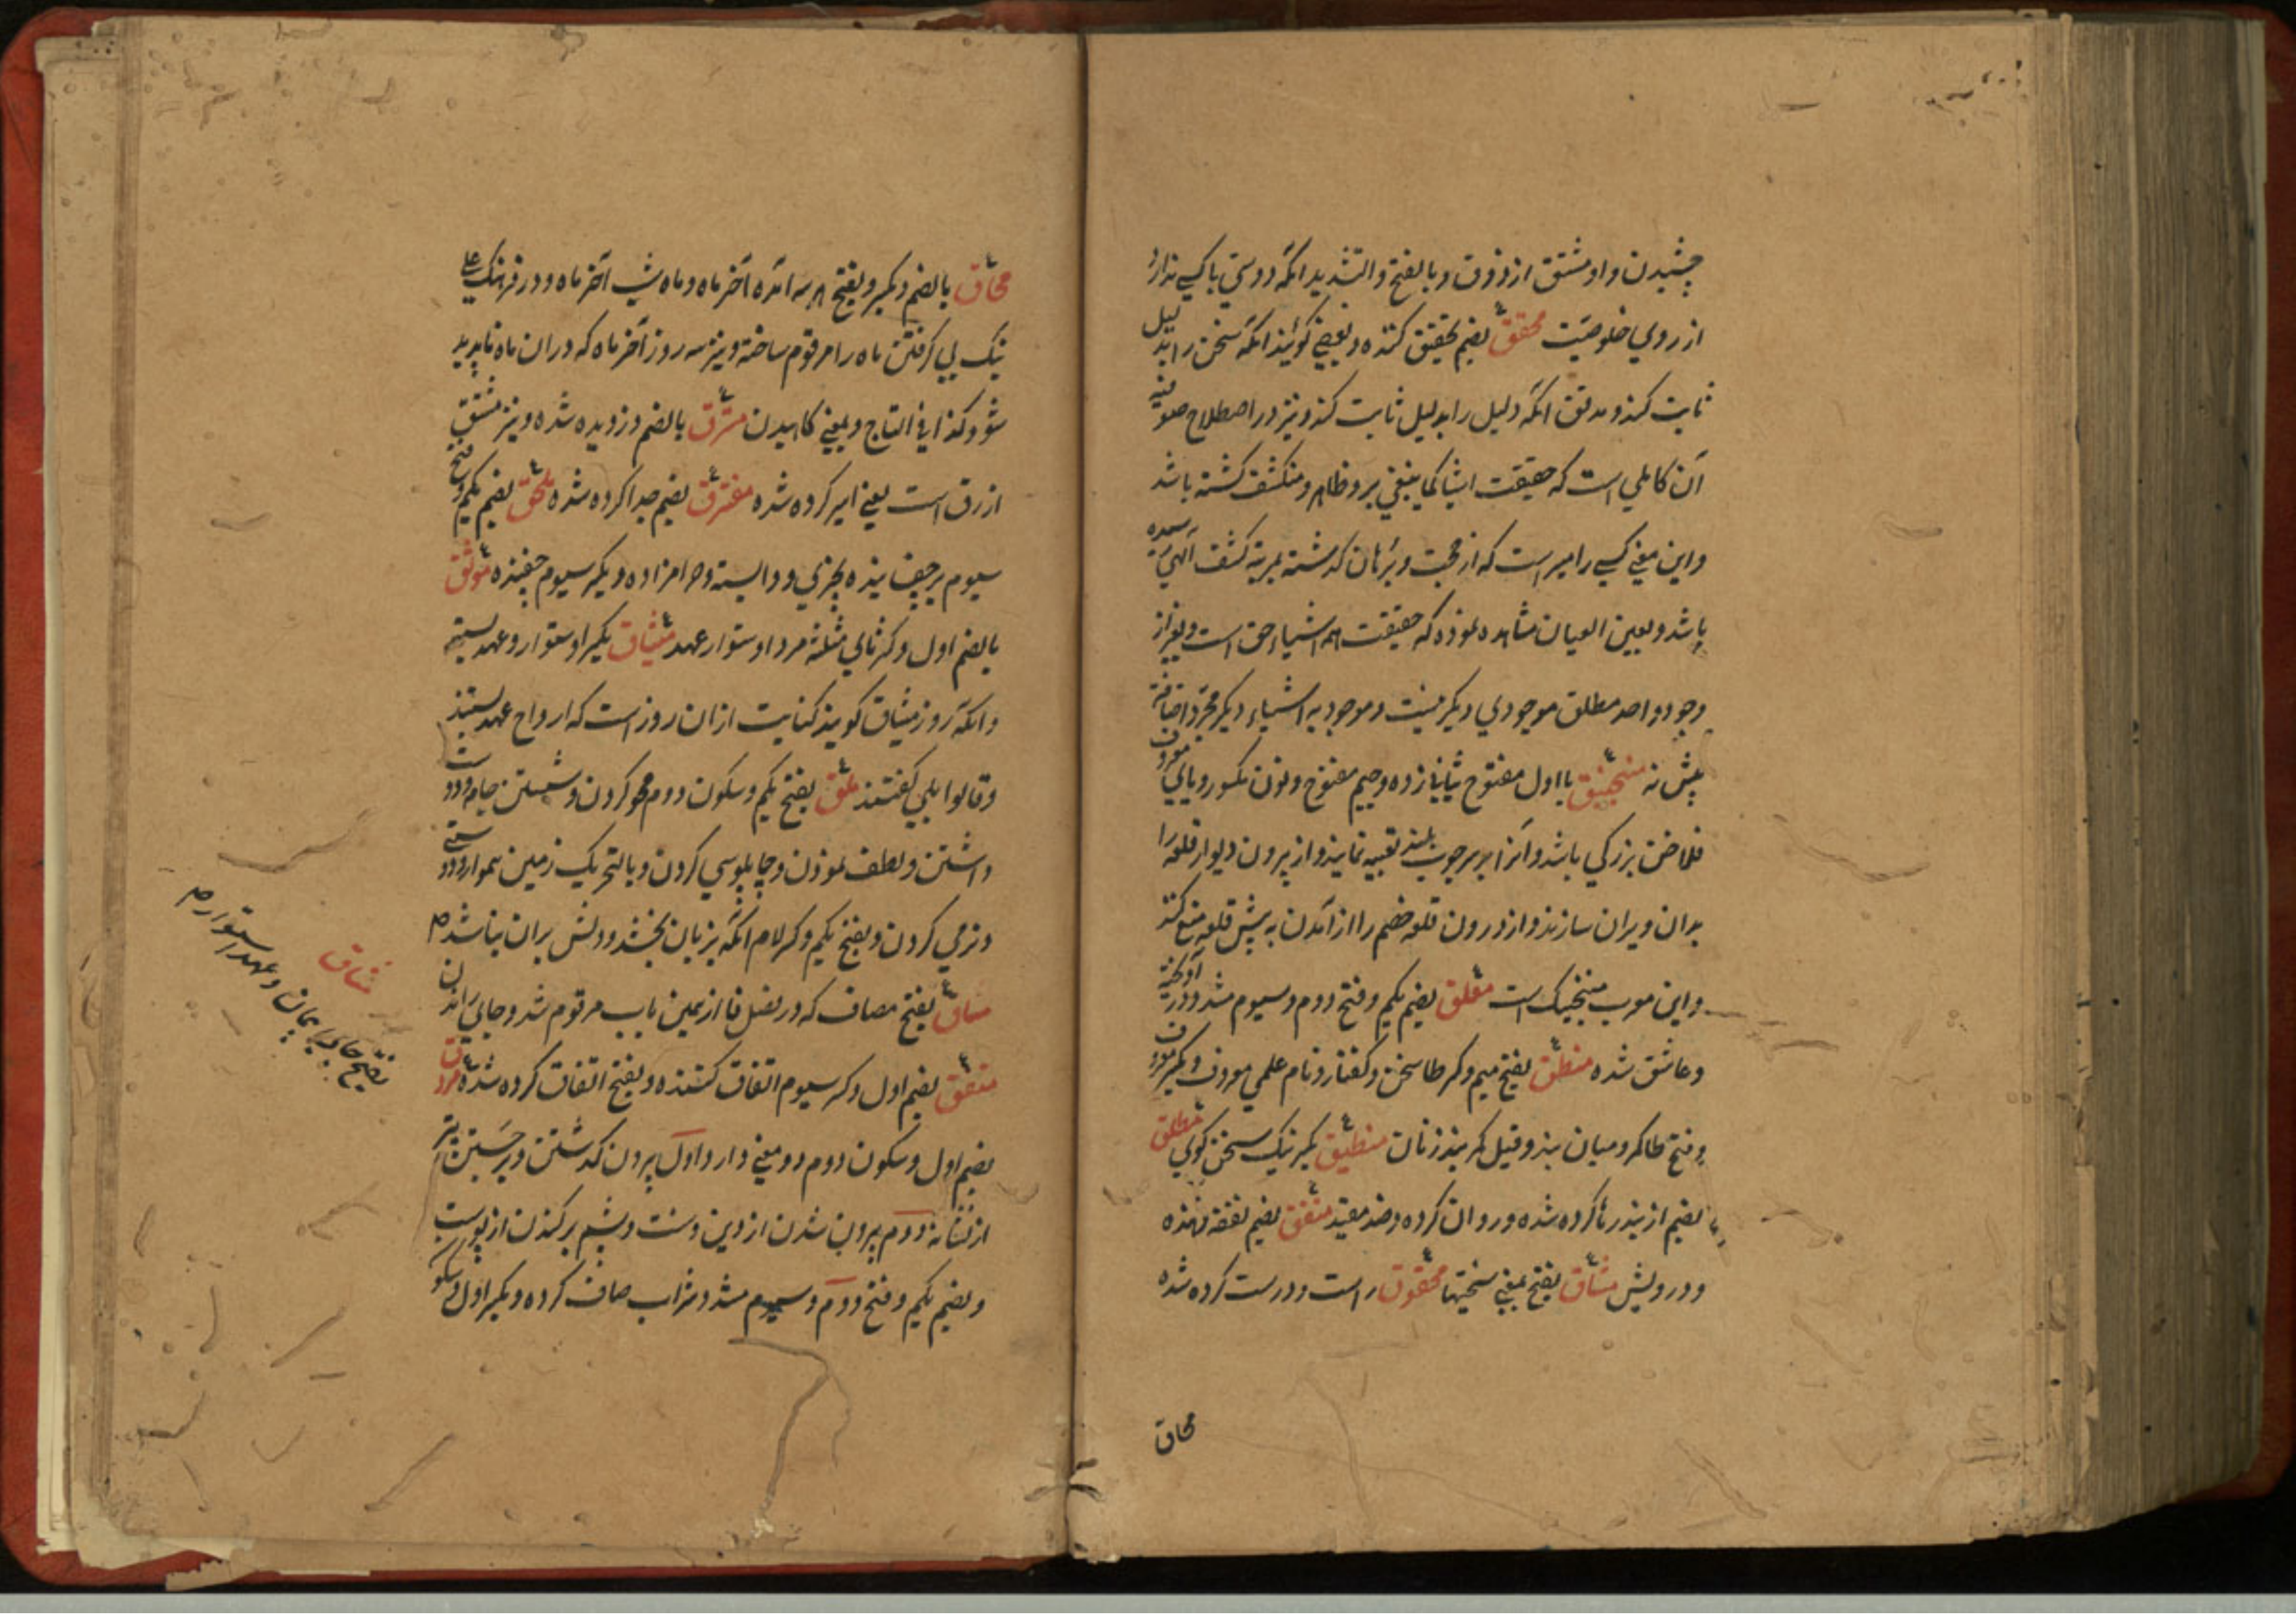 چشیدن و او مشتق از ذوق و بالفتح والتشدید انکه دوستی با کسی ندارد
از روی خلوصیت محقق بضم تحقیق کننده و بعضی کویند انکه سخن را بدلیل
ثابت کند و مدقق انکه دلیل را بدلیل ثابت کند و نیز در اصطلاح صوفیه
آن کاملی است که حقیقت اشیا کما ینبغی برو ظاهر و منکشف کشته باشد
و این معنی کسی را میسر است که از حجت و برهان کذشته بمرتبه کشف الهی رسیده
باشد و بعین العیان مشاهده نموده که حقیقت همه اشیاء حق است و بغیر از
وجود واحد مطلق موجودی دیکر نیست و موجودیه اشیاء دیکر مجرد اضافة
بیش نه منجنیق با اول مفتوح بثانی زده و جیم مفتوح و نون مکسور و یای معروف
فلاخن بزرکی باشد و آنرا بر سر چوب بلند تعبیه نمایند و از بیرون دیوار قلعه را
بدان ویران سازند و از درون قلعه خصم را از آمدن به پیش قلعه منع کنند
و این معرب منجنیک است مغلق بضم یکم و فتح دوم و سیوم مشدد در آویخته
و عاشق شده منطق بفتح میم و کسر طا سخن و کفتار و نام علمی معروف و بکسر میم
و فتح طا کمر و میان بند و قیل کمر بند زنان منطیق بکسر نیک سخن کوی مطلق
بضم از بند رها کرده شده و روان کرده و ضد مقید منفق بضم نفقه دهنده
و درویش مشاق بفتح بمعنی سختیها محقوق راست و درست کرده شده
محاق
محاق بالضم و بکسر و بفتح هر سه امده آخر ماه و ماه شب آخر ماه و در فرهنک علی
نیک پی کرفتن ماه را مرقوم ساخته و نیز سه روز آخر ماه که دران ماه ناپدید
شود و کذا فی التاج و بمعنی کاهیدن مسرق بالضم دزدیده شده و نیز مشتق
از رق است یعنی اسیر کرده شده مفترق بضم جدا کرده شده ملحق بضم یکم و فتح
سیوم بر چفسانیده بچیزی و وابسته و حرامزاده و بکسر سیوم چفسنده موثق
بالضم اول و کسر ثالث مثلثه مرد استوار عهد میثاق بکسر استوار و عهد بسته
و انکه روز میثاق کویند کنایت ازان روز است که ارواح عهد بستند
و قالوا بلی کفتند ملق بفتح یکم و سکون دوم محو کردن و شستن جامه و دوست
داشتن و لطف نمودن و چاپلوسی کردن و بالتحریک زمین هموار و دوستی
و نرمی کردن و بفتح یکم و کسر لام انکه بزبان بخشد و دلش بران نباشد
مساق بفتح مصاف که در فصل فا از همین باب مرقوم شد و جای راندن
متفق بضم اول و کسر سیوم اتفاق کننده و بفتح اتفاق کرده شده مروق
بضم اول و سکون دوم دو معنی دارد اول بیرون کذشتن و بر جستن تیر
از نشانه دوم بیرون شدن از دین و سنت و پشم بر کندن از پوست
و بضم یکم و فتح دوم و سیوم مشدد شراب صاف کرده و بکسر اول و سکون
مثاق
بفتح جای پیمان و عهد استوار